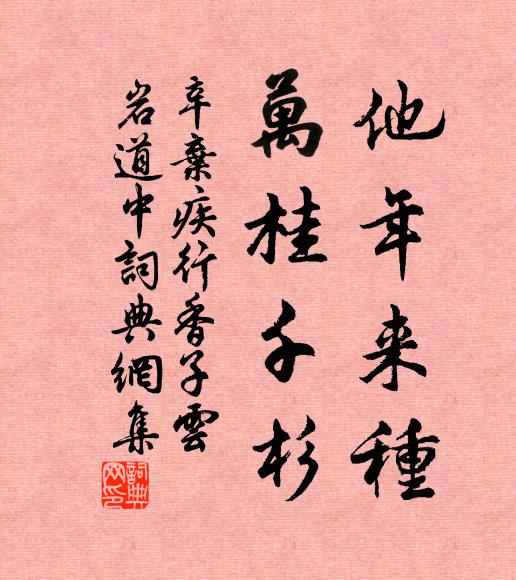 他年来種
萬桂千杉
辛棄疾行香子雲
岩道中詞典網集
詞典
网印